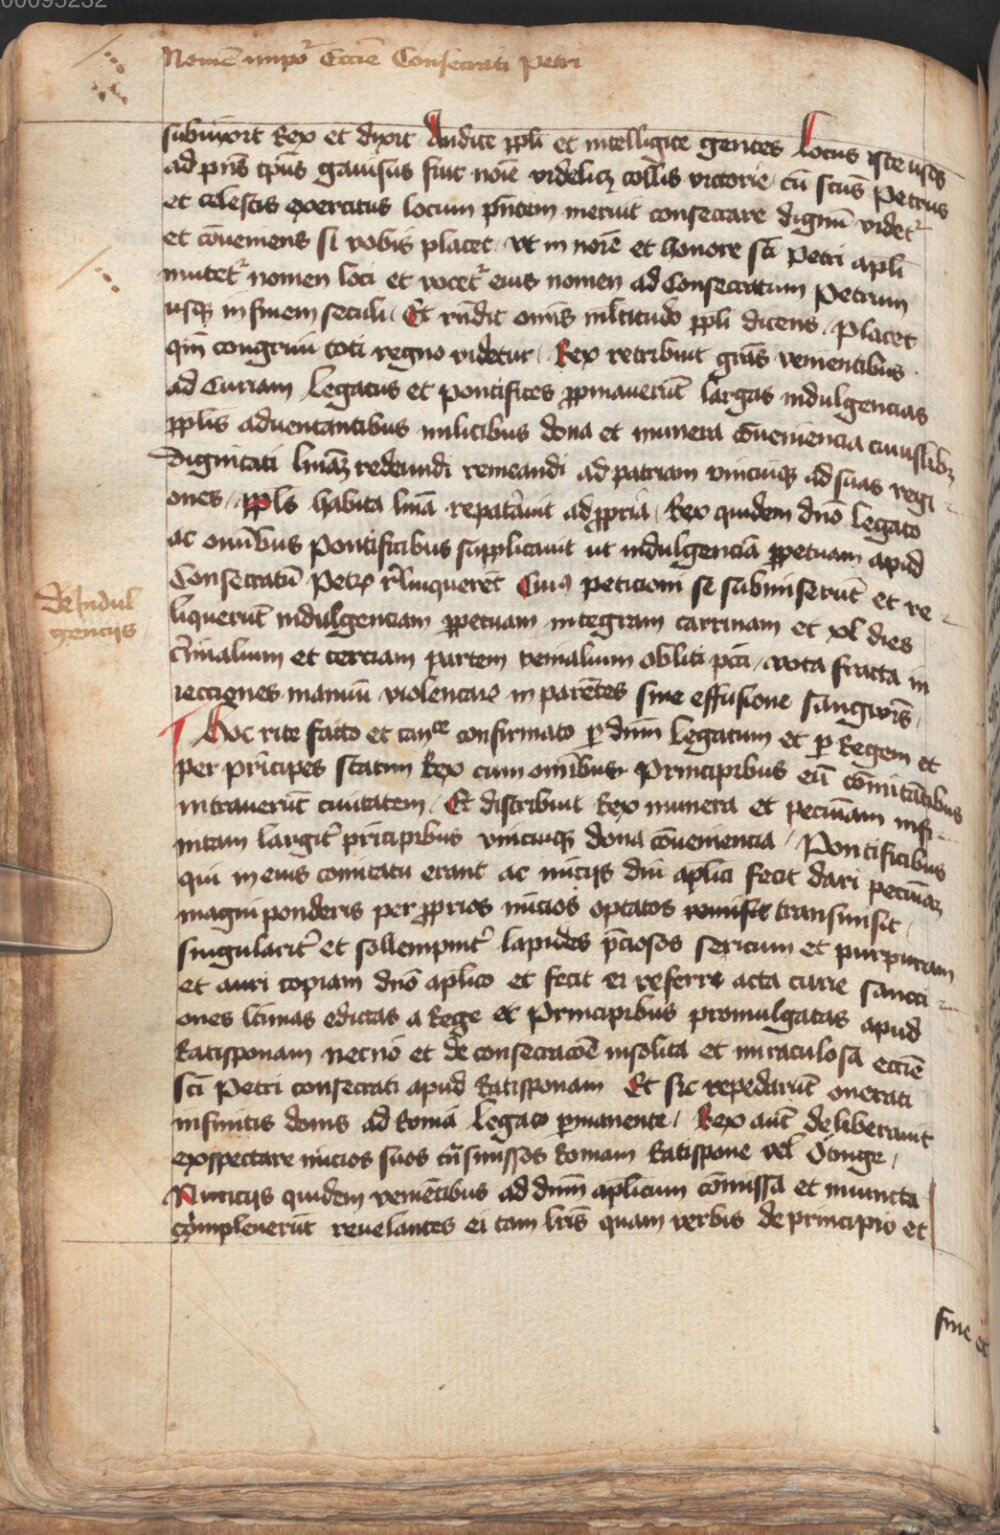 00095232
Nomē impōr Ecctē Consecrati Petri
subiūxit Rex et dixit Audite ppli et intelligite gentes Locus iste usq̄
ad p̄ns tp̄us gauisus fuit noīe videlicꝫ collis victorie cū sctūs Petrus
et celestis exercitus locum p̄ntem meruit consecrare dignū videtr̄
et cōueniens si vobis placet vt in noīe et honore sc̄i Petri apl̄i
mutetr̄ nomen loci et vocetr̄ eius nomen ad Consecratum Petrum
usqꝫ in finem seculi Et rn̄dit omīs m̄ltitudo ppli dicens Placet
qm̄ congruū toti regno videtur Rex retribuit grās venientibus
ad Curiam Legatus et pontifices ꝓpinauerūt largas indulgencias
pplis aduentantibus militibus dona et munera cōueniencia cuiuslibꝫ
dignitati lnīaꝫ redeundi remeandi ad patriam vnicuiqꝫ ad suas regi
ones ppls habita lnīa repat̄auit ad ꝓpria Rex quidem dnō legato
ac omībus pontificibus supplicauit ut indulgenciā ꝑpetuam apud
Consecratū Petrꝫ rl̄inquerēt Cuiꝰ peticioni se submiserūt et re
liquerūt indulgenciam ꝑpetuam integram carrinam et xl dies
De Indul
gencijs
c̄iminalium et terciam partem venialium obliti pctī vota fracta in
iecciones manuū violentas in parētes sine effusione sangwīs
Hoc rite facto et tanᶜᵉ confirmato ꝑ dnm̄ legatum et ꝑ Regem et
per prīcipes statim Rex cum omībus principibus eū cōmitātibus
intrauerūt ciuitatem Et distribuit Rex munera et pecūiam infi
nitam largitr̄ prīcipibus vnicuiqꝫ dona cōueniencia Pontificibus
qui in eius comitatu erant ac nūcijs dnī aplici fecit dari pecūiaꝫ
magni ponderis per ꝓprios nūcios optatos transmisit
singularitr̄ et sollempnitr̄ lapides p̄ciosos sericum et purpuram
et auri copiam dnō aplico et fecit ei referre acta curie sancci
ones lt̄imas edictas a Rege et principibus promulgatas apud
Ratisponam necnō et de consecracōe insolita et miraculosa ecctē
sc̄i Petri consecrati apud Ratisponam Et sic repedarūt onerati
infinitis donis ad Romā Legato ꝑmanente Rex aūt deliberauit
exspectare nūcios suos trāsmissos Romam Ratispone vel
Nuncijs quidem veniētibus ad dnm̄ aplicum cōmissa et iniuncta
compleuerūt reuelantes ei tam lrīs quam verbis de principio et
fine et